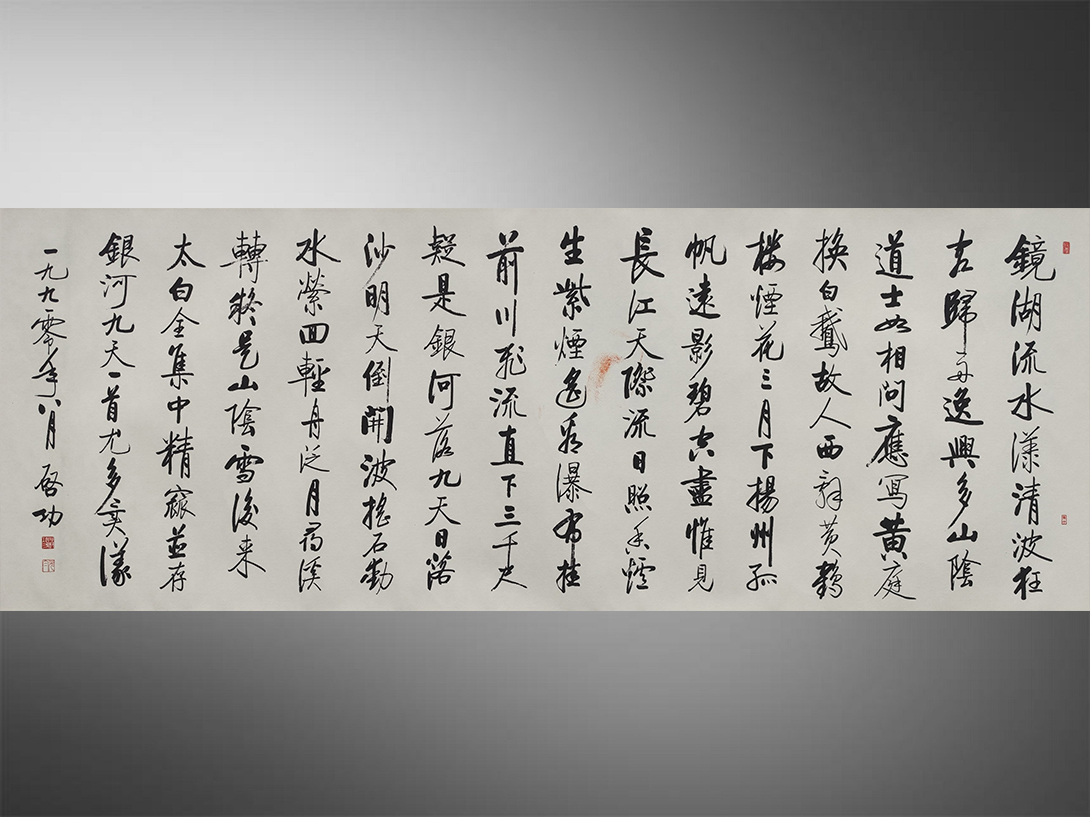 鏡湖流水漾清波狂
客歸舟逸興多山陰
道士如相問應寫黄庭
換白鵝故人西辭黄鶴
樓煙花三月下揚州孤
帆遠影碧空盡惟見
長江天際流日照香爐
生紫煙遙看瀑布挂
前川飛流直下三千尺
疑是銀河落九天日落
沙明天倒開波搖石動
水縈回輕舟泛月尋溪
轉疑是山陰雪後来
太白全集中精窳並存
銀河九天一首尤多
一九九零年八月 啟功